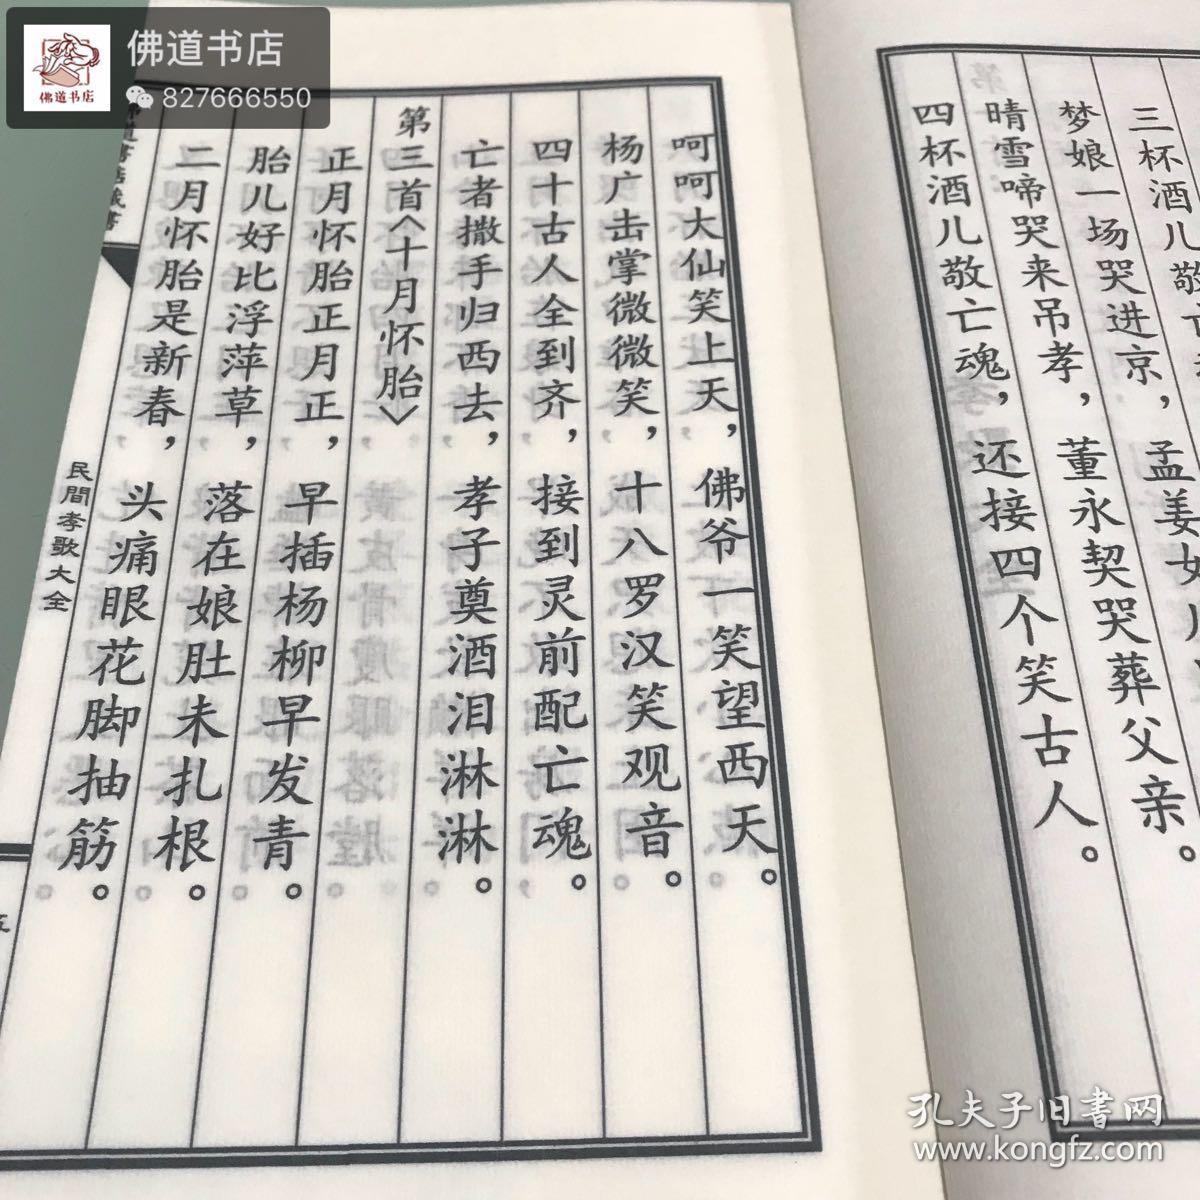 佛道书店
827666550
佛道书店
三杯酒儿敬亡
孟姜女
梦娘一场哭进京，董永契哭葬父亲。
晴雪啼哭来吊孝，还接四个笑古人。
四杯酒儿敬亡魂，
呵呵大仙笑上天，佛爷一笑望西天。
杨广击掌微微笑，十八罗汉笑观音。
四十古人全到齐，接到灵前配亡魂。
亡者撒手归西去，孝子奠酒泪淋淋。
第三首〈十月怀胎〉
正月怀胎正月正，早插杨柳早发青。
胎儿好比浮萍草，落在娘肚未扎根。
二月怀胎是新春，头痛眼花脚抽筋。
民間孝歌大全
孔夫子旧书网
www.kongfz.com